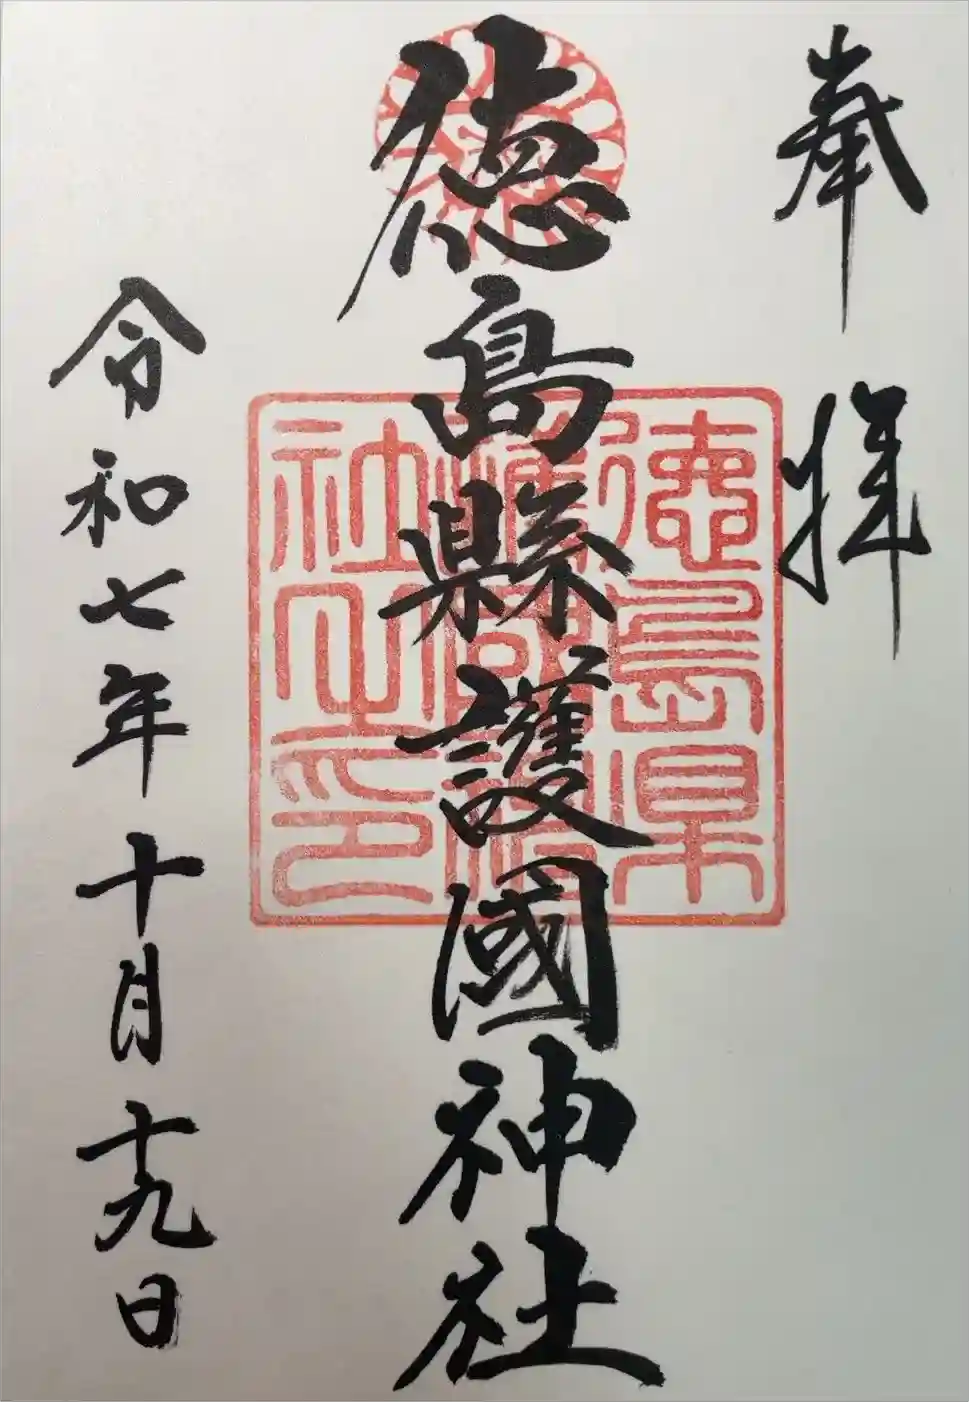 奉拝
徳島縣護國神社
徳島県
護国神
社之印
令和七年十月十九日